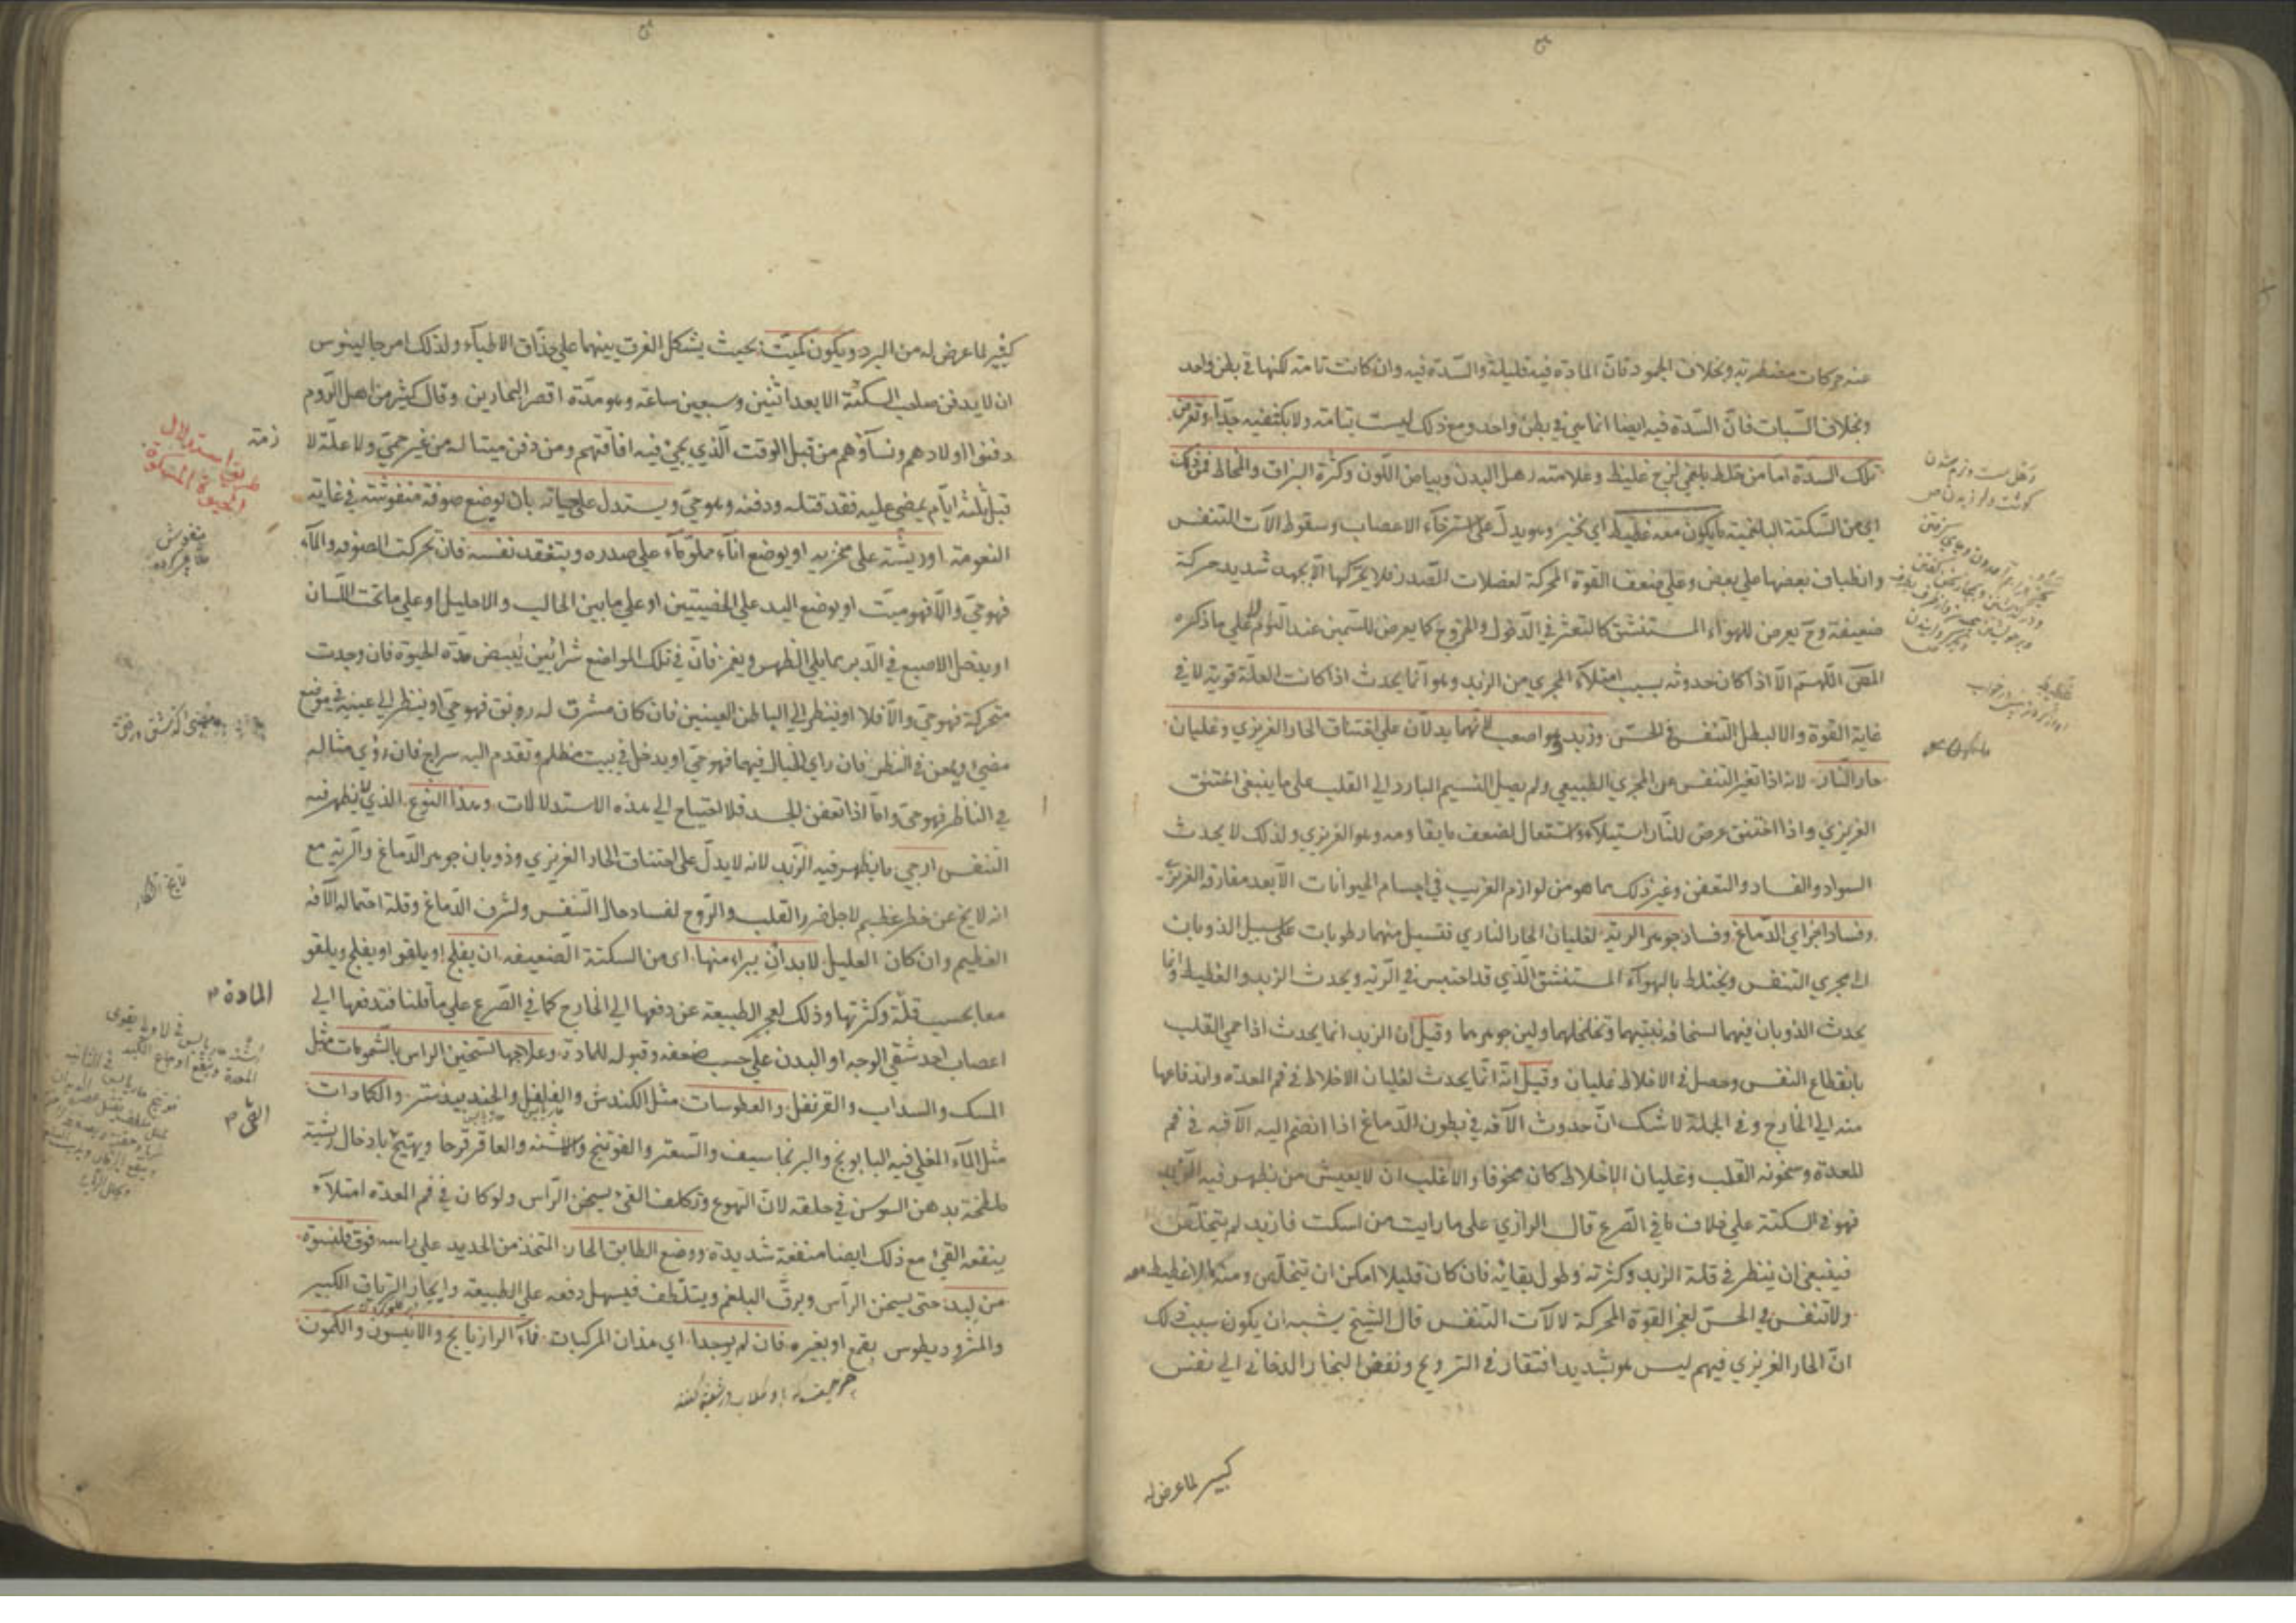 عنه حركات مضطربة وبخلاف الجمود فان المادة فيه قليلة والسدة فيه وان كانت تامة لكنها في بطن واحد
وبخلاف السبات فان السدة فيه ايضا انما هي في بطن واحد ومع ذلك ليست بتامة ولا بكثيفة جدا وتعرض
تلك السدة اما من خلط بلغمي لزج غليظ وعلامته رهل البدن وبياض اللون وكثرة البزاق والمخاط فمن تلك
اي من السكتة البلغمية ما يكون معه غطيط اي نخير وهو يدل على استرخاء الاعصاب وسقوط الآت التنفس
وانطباق بعضها على بعض وعلى ضعف القوة المحركة لعضلات الصدر فلا يحركها الا بجهد شديد حركة
ضعيفة وح يعرض للهواء المستنشق كالتعثر في الدخول والخروج كما يعرض للسمين عند النوم على ما ذكره
المص اللهم الا اذا كان حدوثه بسبب امتلاء المجرى من الزبد وهو انما يحدث اذا كانت العلة قوية لا في
غاية القوة والا لبطل التنفس في الحس وزبد وهو اصعب لانهما يدلان على اختناق الحار الغريزي وغليان
حار النار لانه اذا تغير التنفس عن المجرى الطبيعي ولم يصل النسيم البارد الى القلب على ما ينبغي اختنق
الغريزي واذا اختنق عرض للنار استيلاء واشتعال لضعف ما يقاومه وهو الغريزي ولذلك لا يحدث
السواد والفساد والتعفن وغير ذلك مما هو من لوازم الغريب في اجسام الحيوانات الا بعد مفارقة الغريزي
وفساد اجزاي الدماغ وفساد جوهر الرية لغليان الحار الناري فتسيل منهما رطوبات على سبيل الذوبان
الى مجرى التنفس ويختلط بالهواء المستنشق الذي قد احتبس في الرية ويحدث الزبد والغطيط وانما
يحدث الذوبان فيهما لسخافة نبتيهما وتخلخلهما ولين جوهرهما وقيل ان الزبد انما يحدث اذا حمي القلب
بانقطاع النفس وحصل في الاخلاط غليان وقيل انه انما يحدث لغليان الاخلاط في فم المعدة واندفاعها
منه الى الخارج وفي الجملة لا شك ان حدوث الآفة في بطون الدماغ اذا انضم اليه الآفة في فم
المعدة وسخونة القلب وغليان الاخلاط كان مخوفا والاغلب ان لا يعيش من يظهر فيه الزبد
فهو في السكتة على خلاف ما في الصرع قال الرازي على ما رايت من اسكت فازبد لم يتخلص
فينبغي ان ينظر في قلة الزبد وكثرته وطول بقائه فان كان قليلا امكن ان يتخلص ومنه ما لا غطيط معه
ولا تنفس في الحس لعجز القوة المحركة لآلات التنفس قال الشيخ يشبه ان يكون سبب ذلك
ان الحار الغريزي فيهم ليس هو بشديد افتقار في الترويح ونفض البخار الدخاني الى نفس
كبير لما عرض له
كثير لما عرض له من البرد ويكون كميت بحيث يشكل الفرق بينهما على حذاق الاطباء ولذلك امر جالينوس
ان لا يدفن صاحب السكتة الا بعد اثنين وسبعين ساعة وهو مدة اقصر البحارين وقال كثير من اهل الروم
دفنوا اولادهم ونساؤهم من قبل الوقت الذي يجئ فيه افاقتهم ومن دفن ميتا له من غير حمى ولا علة لا
زمنة
قبل ثلثة ايام يمضي عليه فقد قتله ودفنه وهو حي ويستدل على حياته بان يوضع صوفة منفوشة في غاية
طريق استدلال
النعومة او ريشة على منخريه او يوضع اناء مملو ماء على صدره ويتفقد نفسه فان تحركت الصوفة والماء
فهو حي والا فهو ميت او يوضع اليد على الخصيتين او على ما بين الحالب والاحليل او على ما تحت اللسان
او يدخل الاصبع في الدبر مما يلي الظهر ويغمز فان في تلك المواضع شرايين ينبض مدة الحيوة فان وجدت
متحركة فهو حي والا فلا او ينظر الى باطن العينين فان كان مشرق له رونق فهو حي او ينظر الى عينيه في موضع
مضئ ويمعن في النظر فان راى الخيال فيهما فهو حي او يدخل في بيت مظلم وتقدم اليه سراج فان رؤي مثاله
في الناظر فهو حي واما اذا تعفن الجسد فلا احتياج الى هذه الاستدلالات وهذا النوع الذي لا يظهر فيه
التنفس ارجى مما يظهر فيه الزبد لانه لا يدل على اختناق الحار الغريزي وذوبان جوهر الدماغ والرية مع
انه لا يخ عن خطر عظيم لاجل ضرر القلب والروح لفساد حال التنفس ولشرف الدماغ وقلة احتماله الآفة
العظيم وان كان العليل لا بد ان يبراء منها اى من السكتة الضعيفة ان يفلج او يلقو او يفلج ويلقو
معا بحسب قلة وكثرتها وذلك لعجز الطبيعة عن دفعها الى الخارج كما في الصرع على ما قلنا فتدفعها الى
المادة
اعصاب احد شقي الوجه او البدن على حسب ضعفه وقبوله للمادة وعلاجها تسخين الراس بالشمومات مثل
المسك والسداب والقرنفل والعطوسات مثل الكندش والفلفل والجندبيدستر والكمادات
مثل الماء المغلي فيه البابونج والبرنجاسيف والسعتر والفوتنج والاشنه والعاقرقرحا ويهتج بادخال ريشة
القئ
ملطخة بدهن السوسن في حلقه لان التهوع وتكلف القئ يسخن الراس ولو كان في فم المعدة امتلاء
ينفعه القئ مع ذلك ايضا منفعة شديدة ووضع الطابق الحار المتخذ من الحديد على راسه فوق قلنسوة
من لبد حتى يسخن الراس ويرق البلغم ويتلطف فيسهل دفعه على الطبيعة وايجار الترياق الكبير
والمثروديطوس بقمع او بغيره فان لم يوجدا اي هذان المركبات فماء الرازيانج والانيسون والكمون